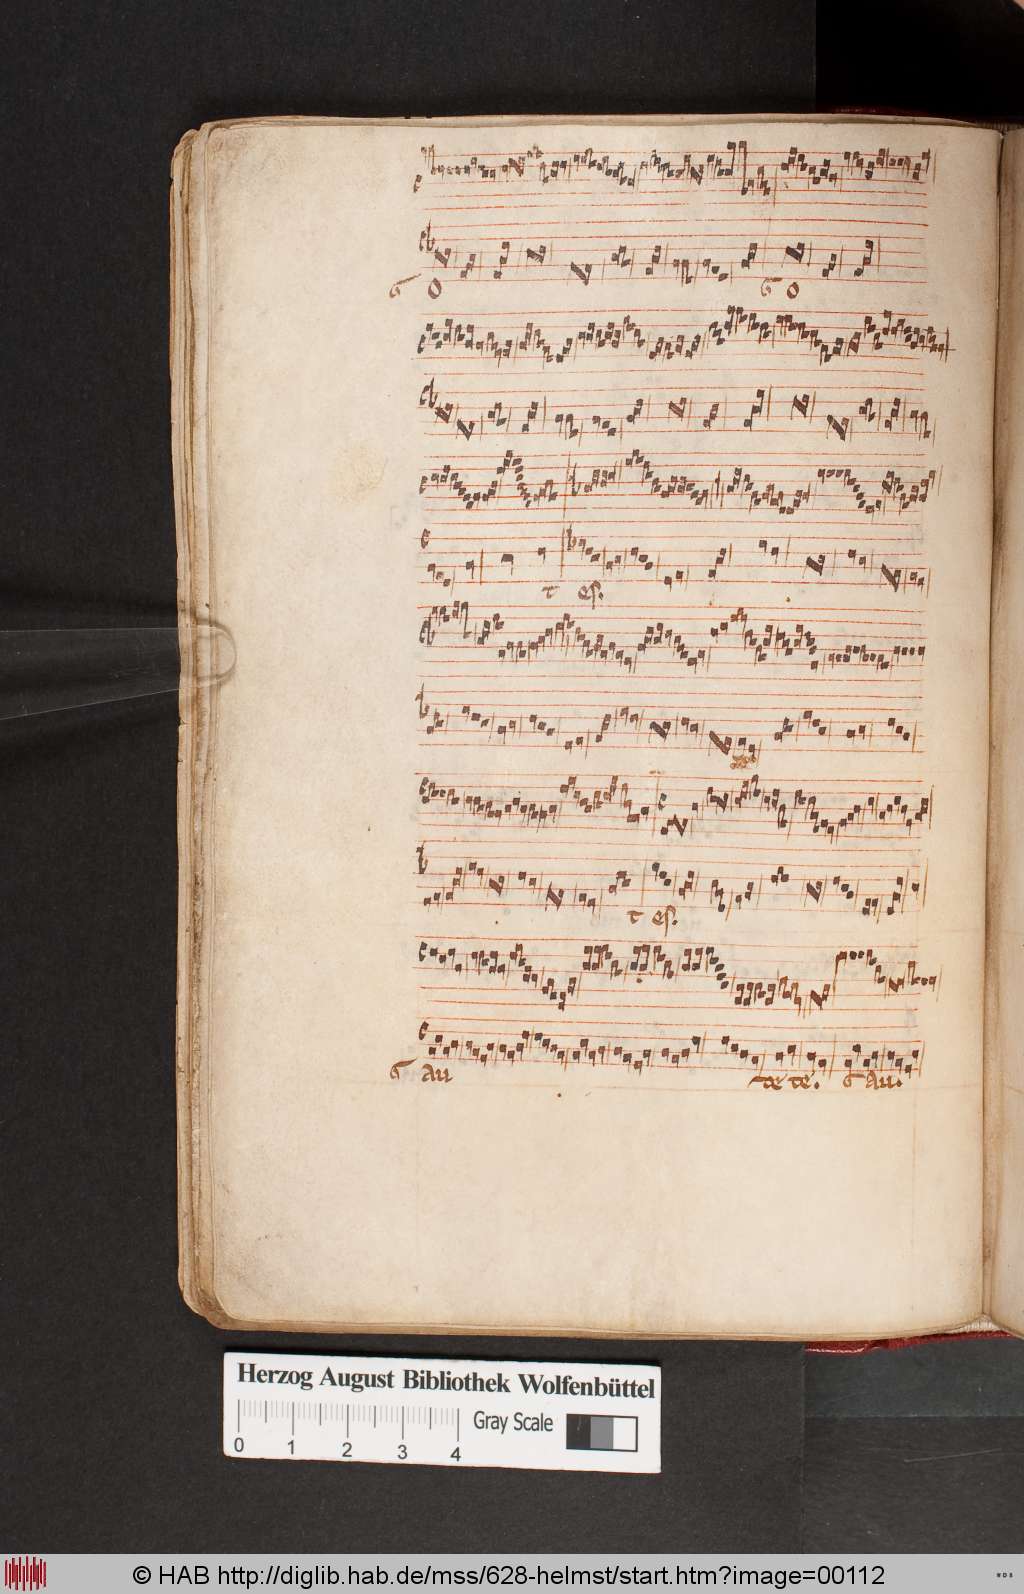 G O G O
t es.
t es.
G Au te te. G Au.
Herzog August Bibliothek Wolfenbüttel
Gray Scale
0 1 2 3 4
© HAB http://diglib.hab.de/mss/628-helmst/start.htm?image=00112